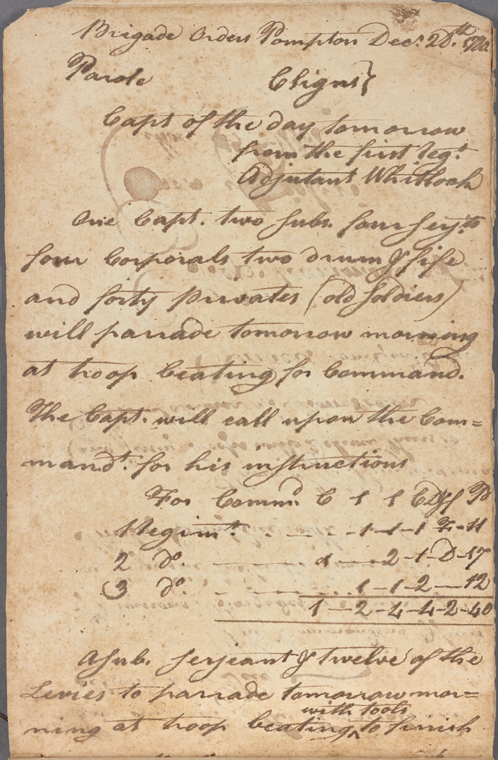 Brigade Orders Pompton Decr. 28th. 1780.
Parole Csigns}
Capt of the day tomorrow
from the first Regt.
Adjutant Whitlock
One Capt. two Subs. four Serjts
four Corporals two drum & fife
and forty privates (old Soldiers)
will parrade tomorrow morning
at troop beating for Command.
The Capt. will call upon the Com=
mandt. for his instructions
For Commd. C S S C D&f P
1 Regimt. - 1 - 1 - 1 F - 11
2 do. 1 - 2 - 1 - D - 17
3 do. 1 - 1 - 2 - 12
1 - 2 - 4 - 4 - 2 - 40
A sub. Serjeant & twelve of the
Levies to parrade tomorrow mor=
with tools
ning at troop beating, to finish